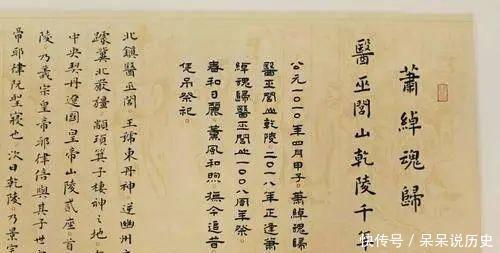 蕭綽魂歸
醫巫閭山乾陵千年
公元一〇一〇年四月甲子。蕭綽魂歸
醫巫閭山乾陵。二〇一八年正逢蕭
綽魂歸醫巫閭山一〇〇八周年祭。
春和日麗。薰風和煦。撫今追昔。
凭吊祭祀
北鎮醫巫閭。王諱東丹神。幽州
冀北嚴疆。顓頊箕子棲神之地。
中央契丹遼國皇帝山陵貳座。首
陵。乃義宗皇帝耶律倍與其子世
帝耶律阮聖寢也。次曰乾陵。乃景宗
快传号/呆呆说历史